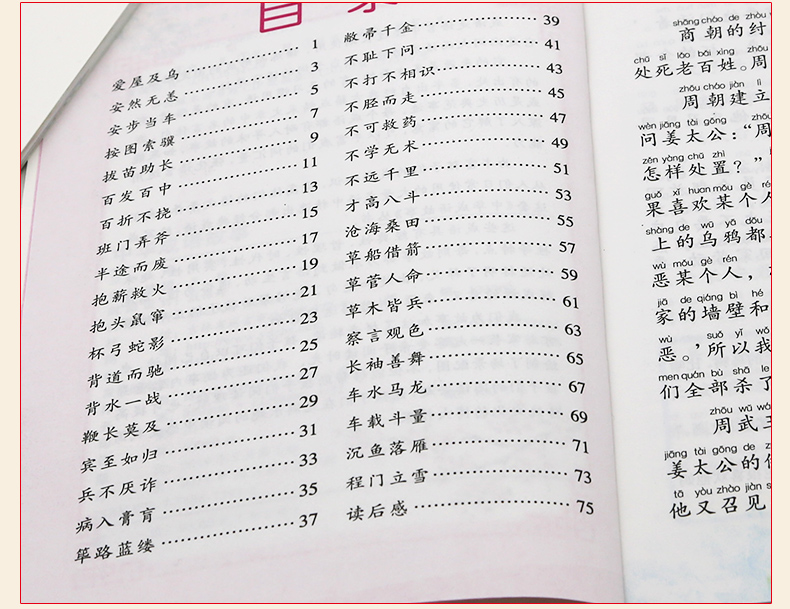 目 录
爱屋及乌 ⋯⋯ 1
安然无恙 ⋯⋯ 3
安步当车 ⋯⋯ 5
按图索骥 ⋯⋯ 7
拔苗助长 ⋯⋯ 9
百发百中 ⋯⋯ 11
百折不挠 ⋯⋯ 13
班门弄斧 ⋯⋯ 15
半途而废 ⋯⋯ 17
抱薪救火 ⋯⋯ 19
抱头鼠窜 ⋯⋯ 21
杯弓蛇影 ⋯⋯ 23
背道而驰 ⋯⋯ 25
背水一战 ⋯⋯ 27
鞭长莫及 ⋯⋯ 29
宾至如归 ⋯⋯ 31
兵不厌诈 ⋯⋯ 33
病入膏肓 ⋯⋯ 35
筚路蓝缕 ⋯⋯ 37
敝帚千金 ⋯⋯ 39
不耻下问 ⋯⋯ 41
不打不相识 ⋯⋯ 43
不胫而走 ⋯⋯ 45
不可救药 ⋯⋯ 47
不学无术 ⋯⋯ 49
不远千里 ⋯⋯ 51
才高八斗 ⋯⋯ 53
沧海桑田 ⋯⋯ 55
草船借箭 ⋯⋯ 57
草菅人命 ⋯⋯ 59
草木皆兵 ⋯⋯ 61
察言观色 ⋯⋯ 63
长袖善舞 ⋯⋯ 65
车水马龙 ⋯⋯ 67
车载斗量 ⋯⋯ 69
沉鱼落雁 ⋯⋯ 71
程门立雪 ⋯⋯ 73
读后感 ⋯⋯ 75
shāng cháo de zhòu
商朝的纣
chǔ sǐ lǎo bǎi xìng zhōu
处死老百姓。周
zhōu cháo jiàn lì
周朝建立
wèn jiāng tài gōng zhōu
问姜太公：“周
zěn yàng chǔ zhì
怎样处置？”
guǒ xǐ huan mǒu gè rén
果喜欢某个人
shàng de wū yā dōu
上的乌鸦都
wù mǒu gè rén
恶某个人，
jiā de qiáng bì hé
家的墙壁和
wù suǒ yǐ wǒ
恶。’所以我
men quán bù shā le
们全部杀了
zhōu wǔ wáng
周武王
jiāng tài gōng de
姜太公的
tā yòu zhào jiàn
他又召见